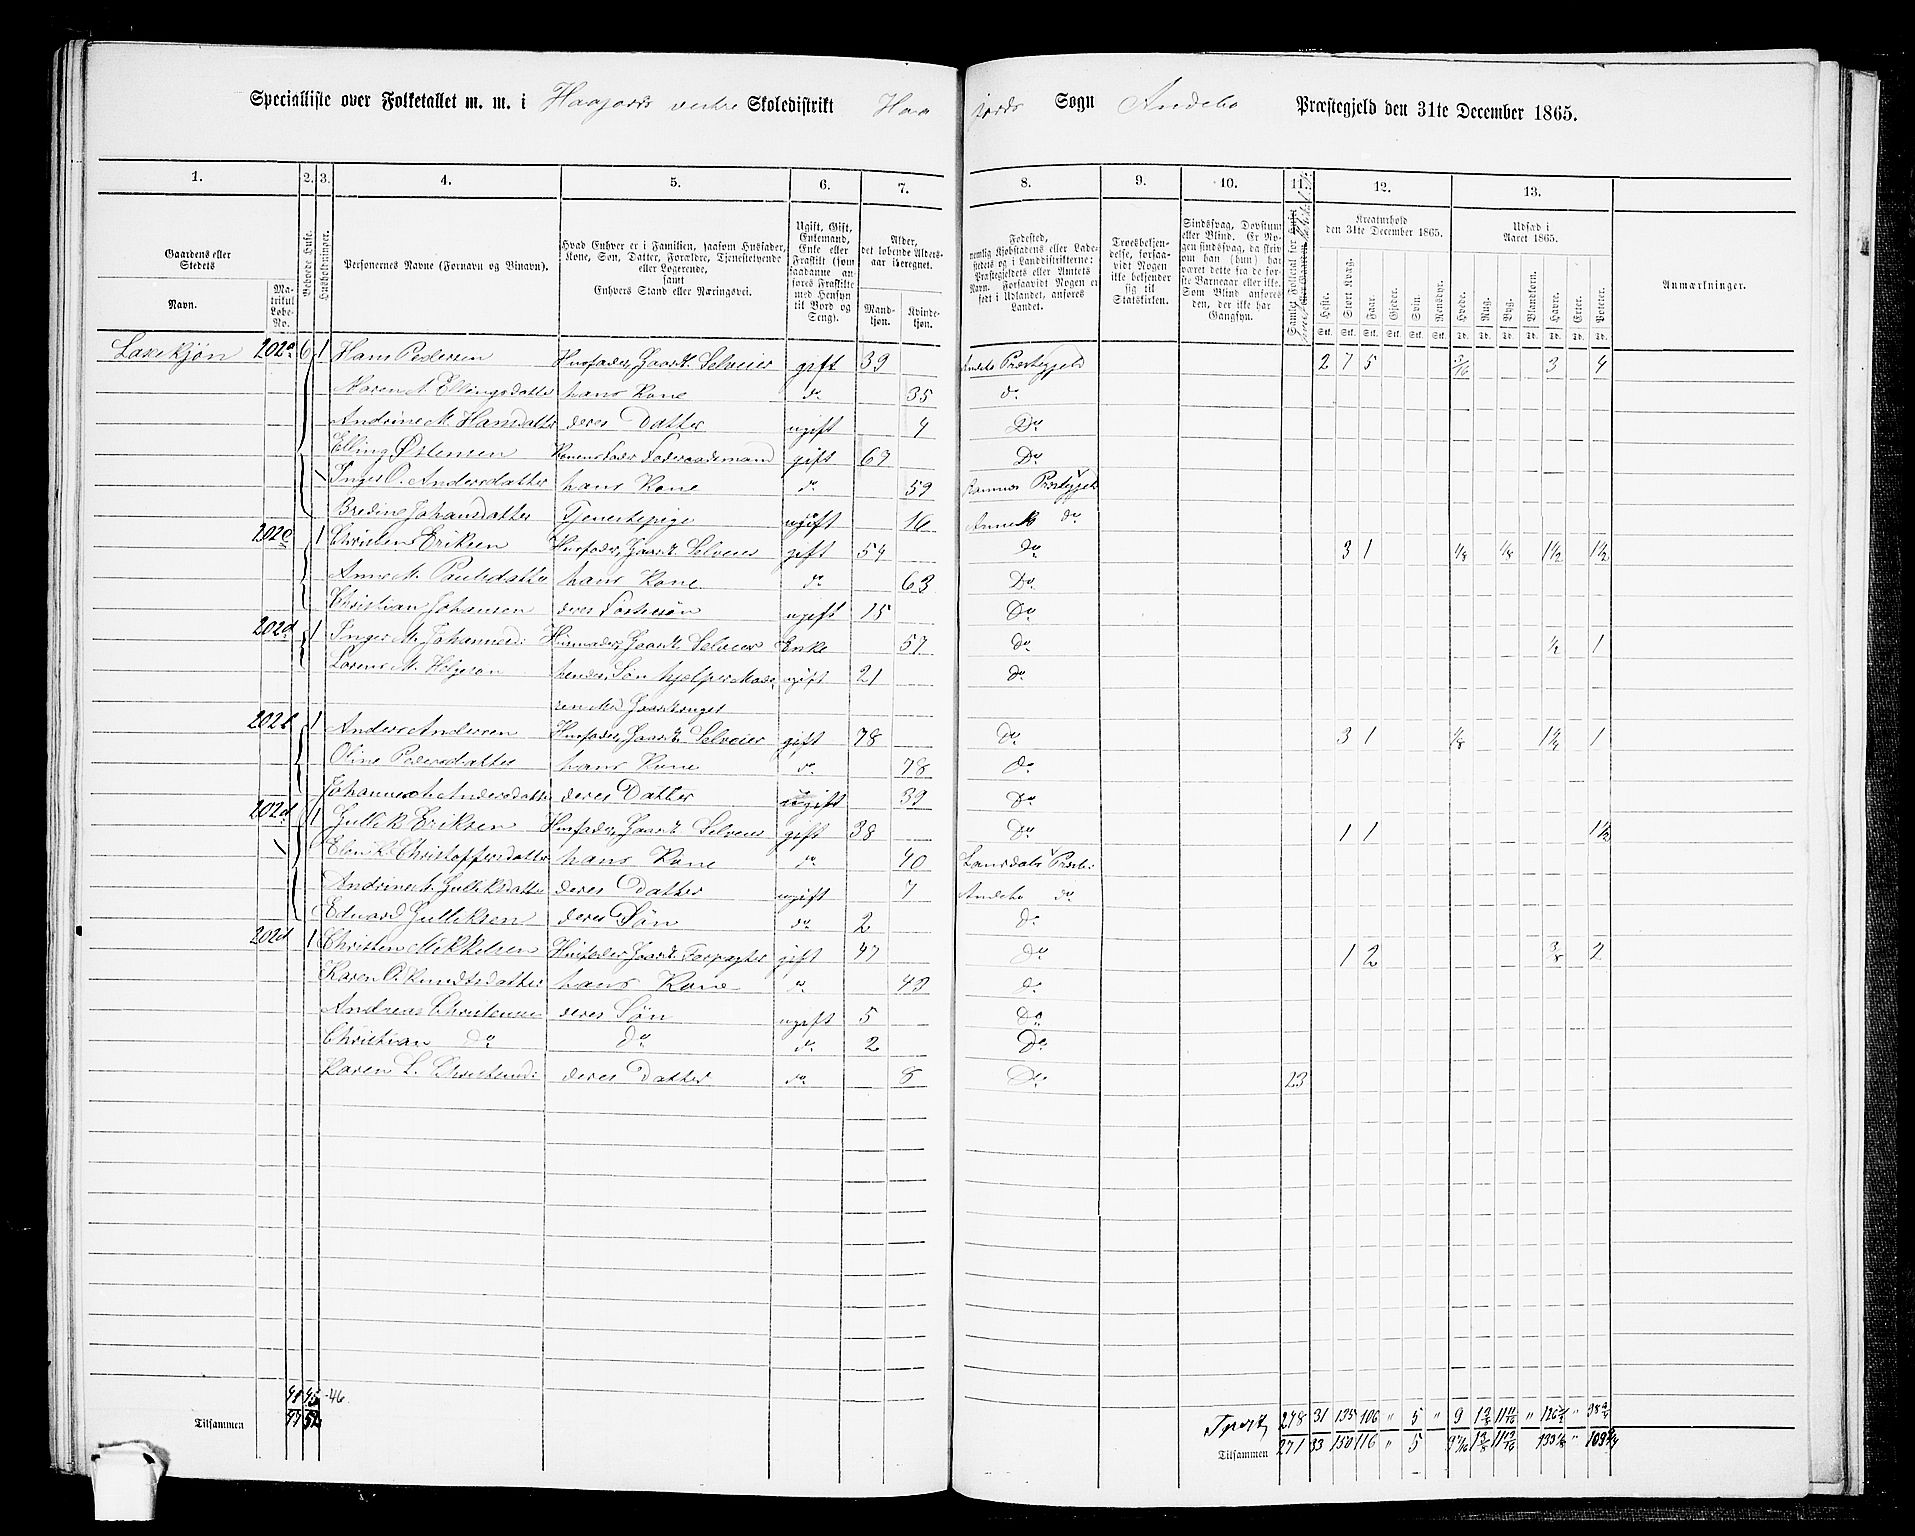 Specialliste over Folketallet m. m. i Haajords vestre Skoledistrikt Haajords Sogn Andebo Præstegjeld den 31te December 1865.
1. 2. 3. 4. 5. 6. 7. 8. 9. 10. 11. 12. 13.
Gaardens eller Stedets
Navn.
Matrikul Løbe-No.
Bebyede Huse.
Husholdninger.
Personernes Navne (Fornavn og Binavn).
Hvad Enhver er i Familien, saasom Husfader, Kone, Søn, Datter, Forældre, Tjenestetyende eller Logerende, samt Enhvers Stand eller Næringsvei.
Ugift, Gift, Enkemand, Enke eller Fraskilt (som saadanne anføres Fraskilte med Hensyn til Bord og Seng).
Alder, det løbende Aldersaar iberegnet.
Mandkjøn. Kvindekjøn.
Fødested, nemlig Kjøbstadens eller Ladestedets og i Landdistrikterne: Præstegjeldets eller Amtets Navn. Forsaavidt Nogen er født i Udlandet, anføres Landet.
Troesbekjendelse, forsaavidt Nogen ikke bekjender sig til Statskirken.
Sindssvag, Døvstum eller Blind. Er Nogen sindssvag, da skrives om han (hun) har været dette fra de første Barneaar eller ikke. Som Blind anføres den, der ikke har Gangsyn.
Kreaturhold den 31te December 1865.
Heste. Stort Kvæg. Faar. Gjeder. Svin. Rensdyr.
Udsæd i Aaret 1865.
Hvede. Rug. Byg. Blandkorn. Havre. Erter. Poteter.
Stk. Stk. Stk. Stk. Stk. Stk. Td. Td. Td. Td. Td. Td. Td.
Anmærkninger.
202a 6 1 Hans Pedersen Husfader, Gaardb. Selveier gift 39 Andebo Præstegjeld 2 7 5 3/16 3 4
Maren A. Ellingsdatter hans Kone do 35 do
Andrine M. Hansdatter deres Datter ugift 4 Do
Elling Østensen Konens Fader Føderaadsmand gift 67 Do
Inger O. Andersdatter hans Kone do 59 Ramnæs Præstegjeld
Bredine Johansdatter Tjenestepige ugift 16 Andebo do
202c 1 Christen Eriksen Husfader, Gaardb. Selveier gift 54 do 3 1 1/8 1/8 1 1/2 1 1/2
Anne M. Paulsdatter hans Kone do 63 Do
Christian Johansen deres Fostersøn ugift 15 Do
202d 1 Inger M. Johannesd: Husmoder, Gaardb. Selveier Enke 57 do 1/2 1
Lorens M. Helgesen hendes Søn hjælper Mode- ugift 21 do
ren med Gaardbruget
1 Anders Andersen Husfader, Gaardb. Selveier gift 78 do 3 1 1/8 1 1/2 1
Oline Pedersdatter hans Kone do 78 do
Johanne M. Andersdatter deres Datter ugift 39 Do
202d 1 Gullik Eriksen Husfader, Gaardb. Selveier gift 38 Do 1 1 1 1/2
Christoffersdatter hans Kone do 40 Præst:
Andrine M. Gulliksdatter deres Datter ugift 7 Andebo do
Edvard Gulliksen deres Søn do 2 do
202d 1 Christen Mikkelsen Husfader, Gaardb. Forpagter gift 47 Do 1 2 3/8 2
Karen O. Knudtsdatter hans Kone do 43 do
Andreas Christensen deres Søn ugift 5 Do
Christian do do do 2 Do
Karen L. Christensd: deres Datter do 8 Do 23
46
Tilsammen
278 31 135 106 " 5 " 9
Tilsammen 271 33 150 116 " 5